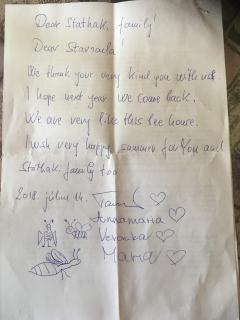 Dear Stathaki family!
Dear Stavroula!
We thank your very kind you with us
I hope next year we come back.
We are very like this bee house.
I wish very happy summer for You and
Stathaki family too
2018. július 14.
Annamaria
Veronika
Maria